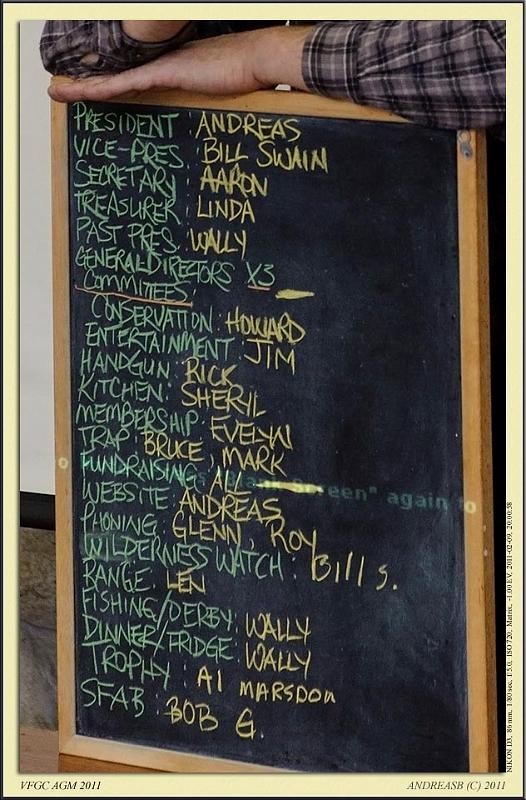 PRESIDENT : ANDREAS
VICE-PRES : BILL SWAIN
SECRETARY : AARON
TREASURER : LINDA
PAST PRES. : WALLY
GENERAL DIRECTORS X3 —
COMMITTEES
CONSERVATION : HOWARD
ENTERTAINMENT : JIM
HANDGUN : RICK
KITCHEN : SHERYL
MEMBERSHIP : EVELYN
TRAP : BRUCE, MARK
FUNDRAISING AL —
"Blank Screen" again to
WEBSITE : ANDREAS
PHONING : GLENN, ROY
WILDERNESS WATCH : Bill S.
RANGE : LEN
FISHING/DERBY : WALLY
DINNER/FRIDGE : WALLY
TROPHY : Al MARSDON
SFAB : BOB G.
NIKON D3, 86 mm, 1/80 sec, f/5.0, ISO 720, Matrix, -1.00 EV, 2011-02-09, 20:00:58
VFGC AGM 2011
ANDREASB (C) 2011